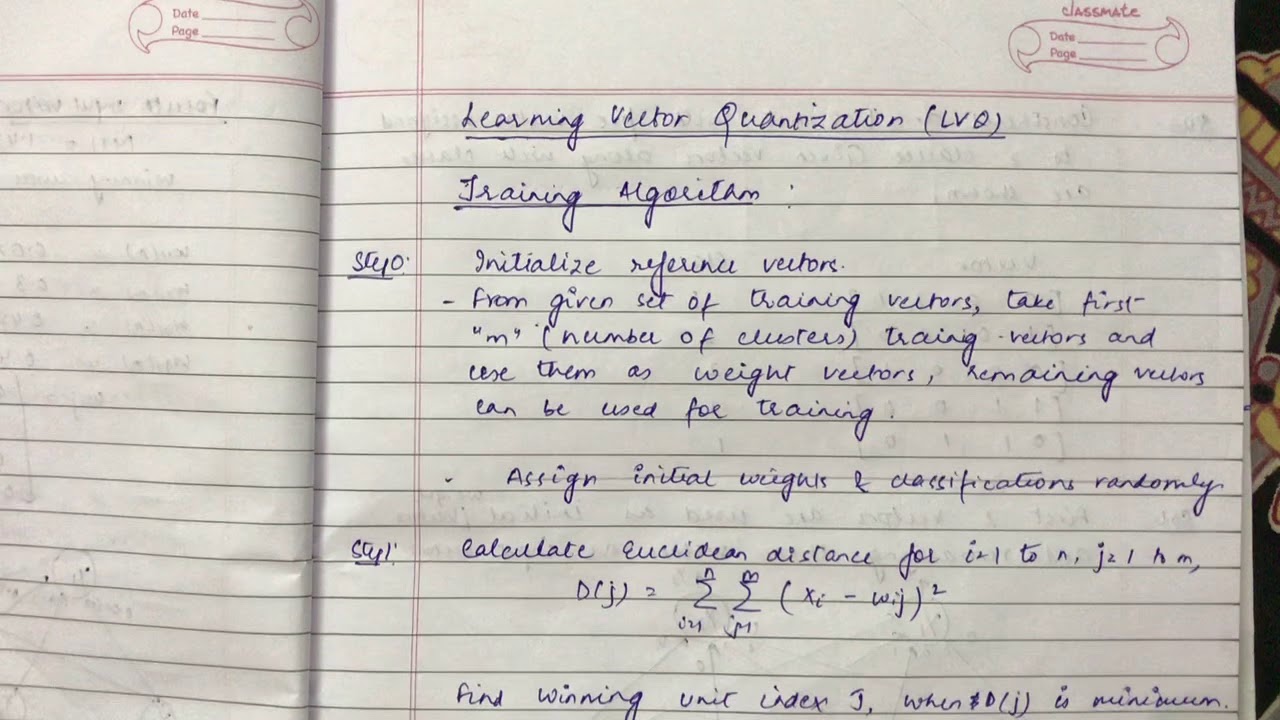 Date
Page
classmate
Date
Page
Learning Vector Quantization (LVQ)
Training Algorithm :
Step0: Initialize reference vectors.
- From given set of training vectors, take first
"m" (number of clusters) traing vectors and
use them as weight vectors, remaining vectors
can be used for training.
- Assign initial weights & classifications randomly.
Step1: Calculate Euclidean distance for i=1 to n, j=1 to m,
D(j) = n∑i=1 m∑j=1 (xi - wij)²
Find winning unit index J, when D(j) is minimum.